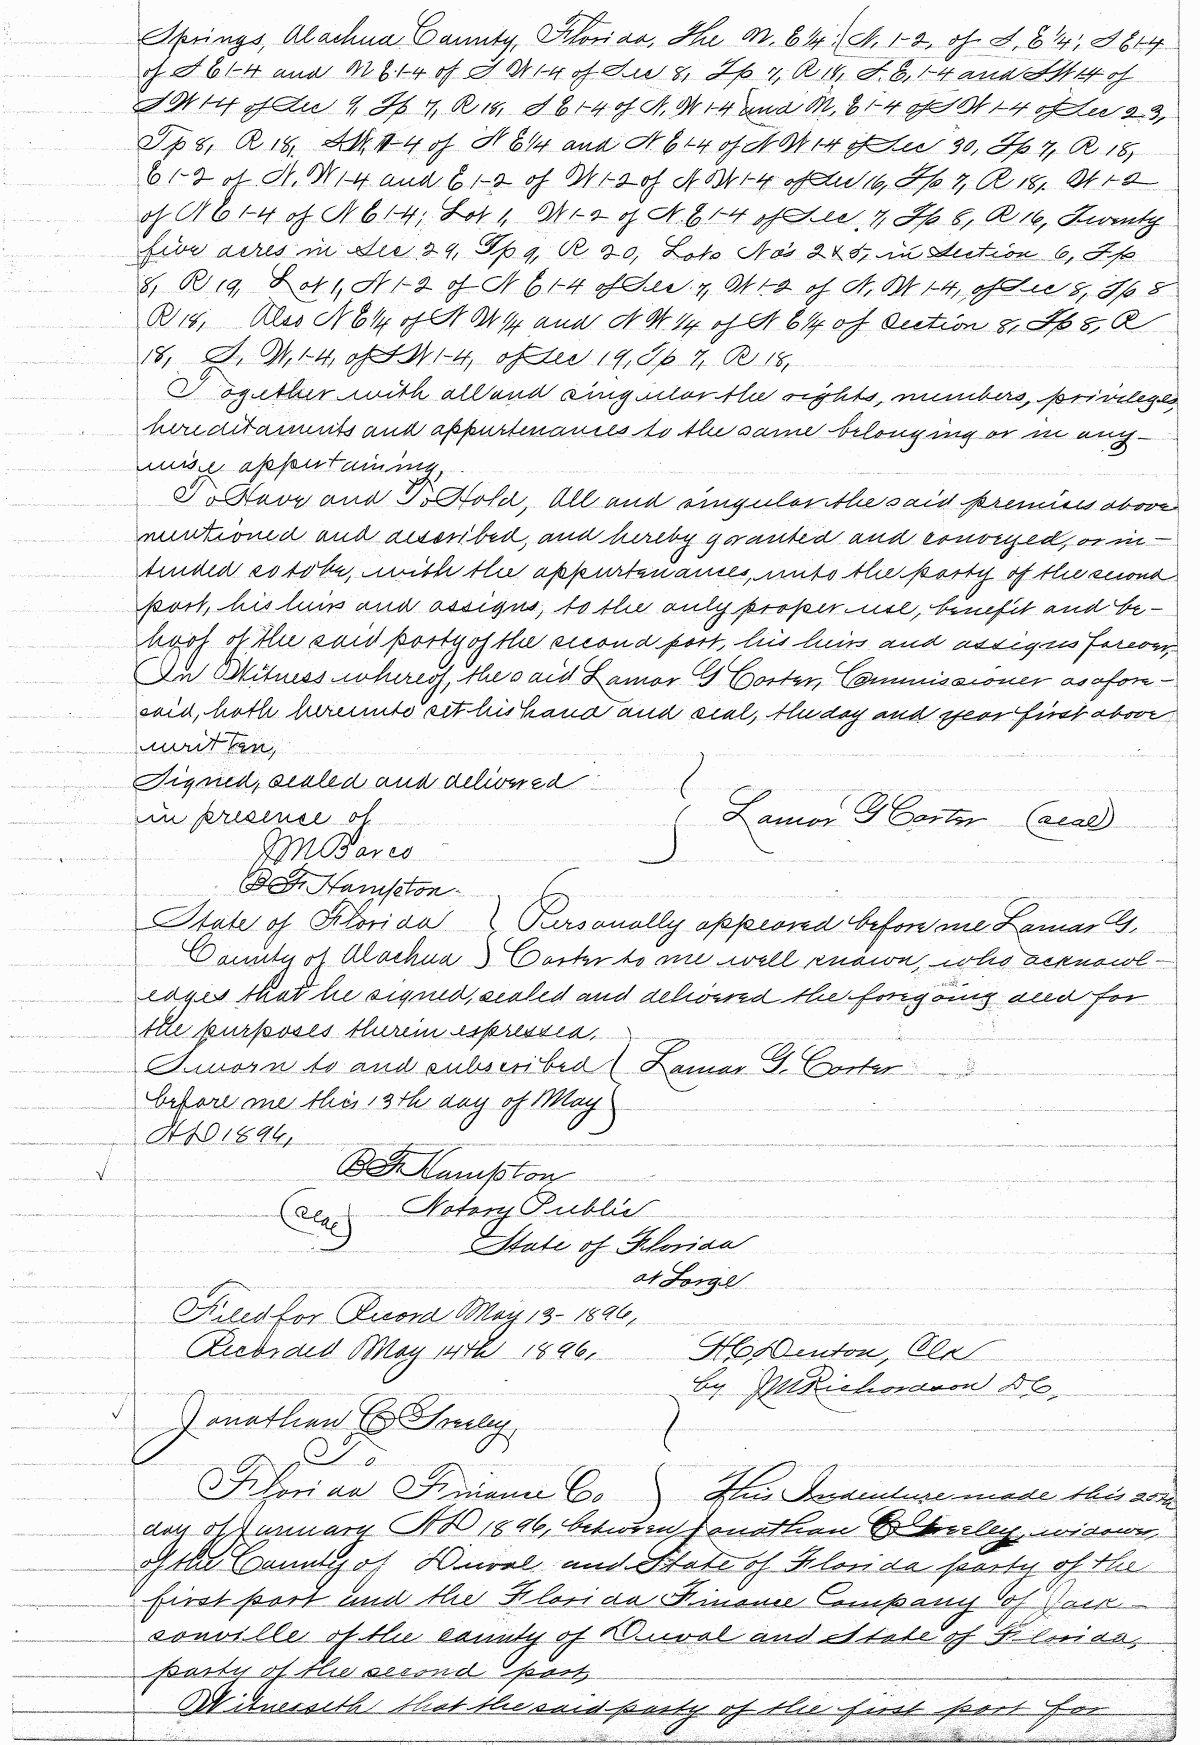 Springs, Alachua County, Florida, The N. E 1/4; (N. 1-2, of S. E 1/4; S E 1-4
of S E 1-4 and N E 1-4 of S W 1-4 of Sec 8, Tp 7, R 18, S. E, 1-4 and S W 1-4 of
S W 1-4 of Sec 9, Tp 7, R 18, S E 1-4 of N. W 1-4 and N. E 1-4 of S W 1-4 of Sec 23,
Tp 8, R 18, S W, 1-4 of N E 1/4 and N E 1-4 of N W 1-4 of Sec 30, Tp 7, R 18,
E 1-2 of N. W 1-4 and E 1-2 of W 1-2 of N W 1-4 of Sec 16, Tp 7, R 18, W 1-2
of N E 1-4 of N E 1-4; Lot 1, W 1-2 of N. E 1-4 of Sec, 7, Tp 8, R 16, Twenty
five acres in Sec 29, Tp 9, R 20, Lots Nos 2 & 5, in Section 6, Tp
8, R 19, Lot 1, N 1-2 of N E 1-4 of Sec 7, W 1-2 of N. W 1-4, of Sec 8, Tp 8
R 18, Also N E 1/4 of N W 1/4 and N W 1/4 of N E 1/4 of Section 8, Tp 8, R
18, S. W, 1-4, of S W 1-4, of Sec 19, Tp 7, R 18,
Together with all and singular the rights, members, privileges,
hereditaments and appurtenances to the same belonging or in any-
wise appertaining,
To Have and To Hold, All and singular the said premises above
mentioned and described, and hereby granted and conveyed, or in-
tended so to be, with the appurtenances, unto the party of the second
part, his heirs and assigns, to the only proper use, benefit and be-
hoof of the said party of the second part, his heirs and assigns forever,
In Witness whereof, the said Lamar G Carter, Commissioner as afore-
said, hath hereunto set his hand and seal, the day and year first above
written,
Signed, sealed and delivered
in presence of
Lamar G Carter (seal)
J M Barco
B F. Hampton
State of Florida } Personally appeared before me Lamar G.
County of Alachua } Carter to me well known, who acknowl-
edges that he signed, sealed and delivered the foregoing deed for
the purposes therein expressed.
Sworn to and subscribed } Lamar G. Carter
before me this 13th day of May
A D 1896,
B F Hampton
(seal) Notary Public
State of Florida
at Large
Filed for Record May 13- 1896,
Recorded May 14th 1896, H C Denton, Clk
by J M Richardson D C,
Jonathan C Greeley,
To
Florida Finance Co } This Indenture made this 20th
day of January A D 1896, between Jonathan C Greeley, widower,
of the County of Duval and State of Florida party of the
first part and the Florida Finance Company of Jack-
sonville of the county of Duval and State of Florida,
party of the second part,
Witnesseth that the said party of the first part for